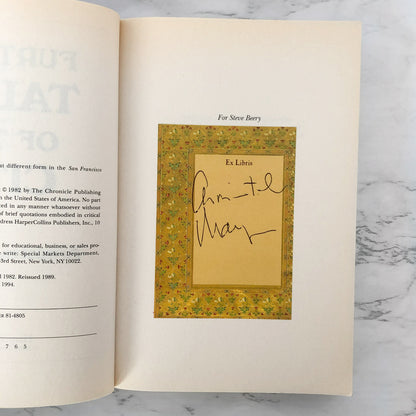 FURT
TAL
OF
at different form in the San Francisco
© 1982 by The Chronicle Publishing
in the United States of America. No part
in any manner whatsoever without
of brief quotations embodied in critical
dress HarperCollins Publishers, Inc., 10
for educational, business, or sales pro-
write: Special Markets Department,
3rd Street, New York, NY 10022.
1982. Reissued 1989.
1994.
81-4805
7 6 5
For Steve Beery
Ex Libris
Armistead
Maupin